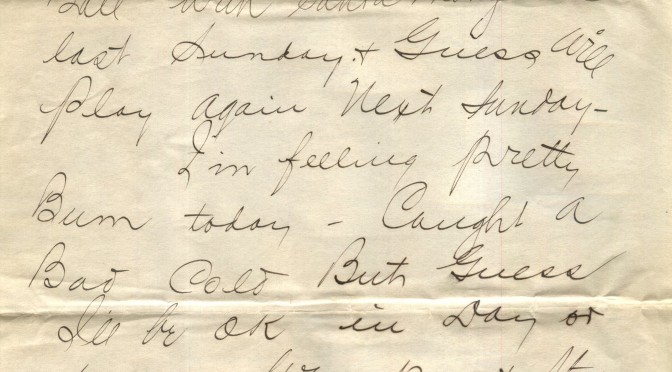 Ball with Santa
last Sunday. & Guess will
Play again Next Sunday -
I'm feeling pretty
Bum today - Caught a
Bad Cold But Guess
I'll be OK in Day or